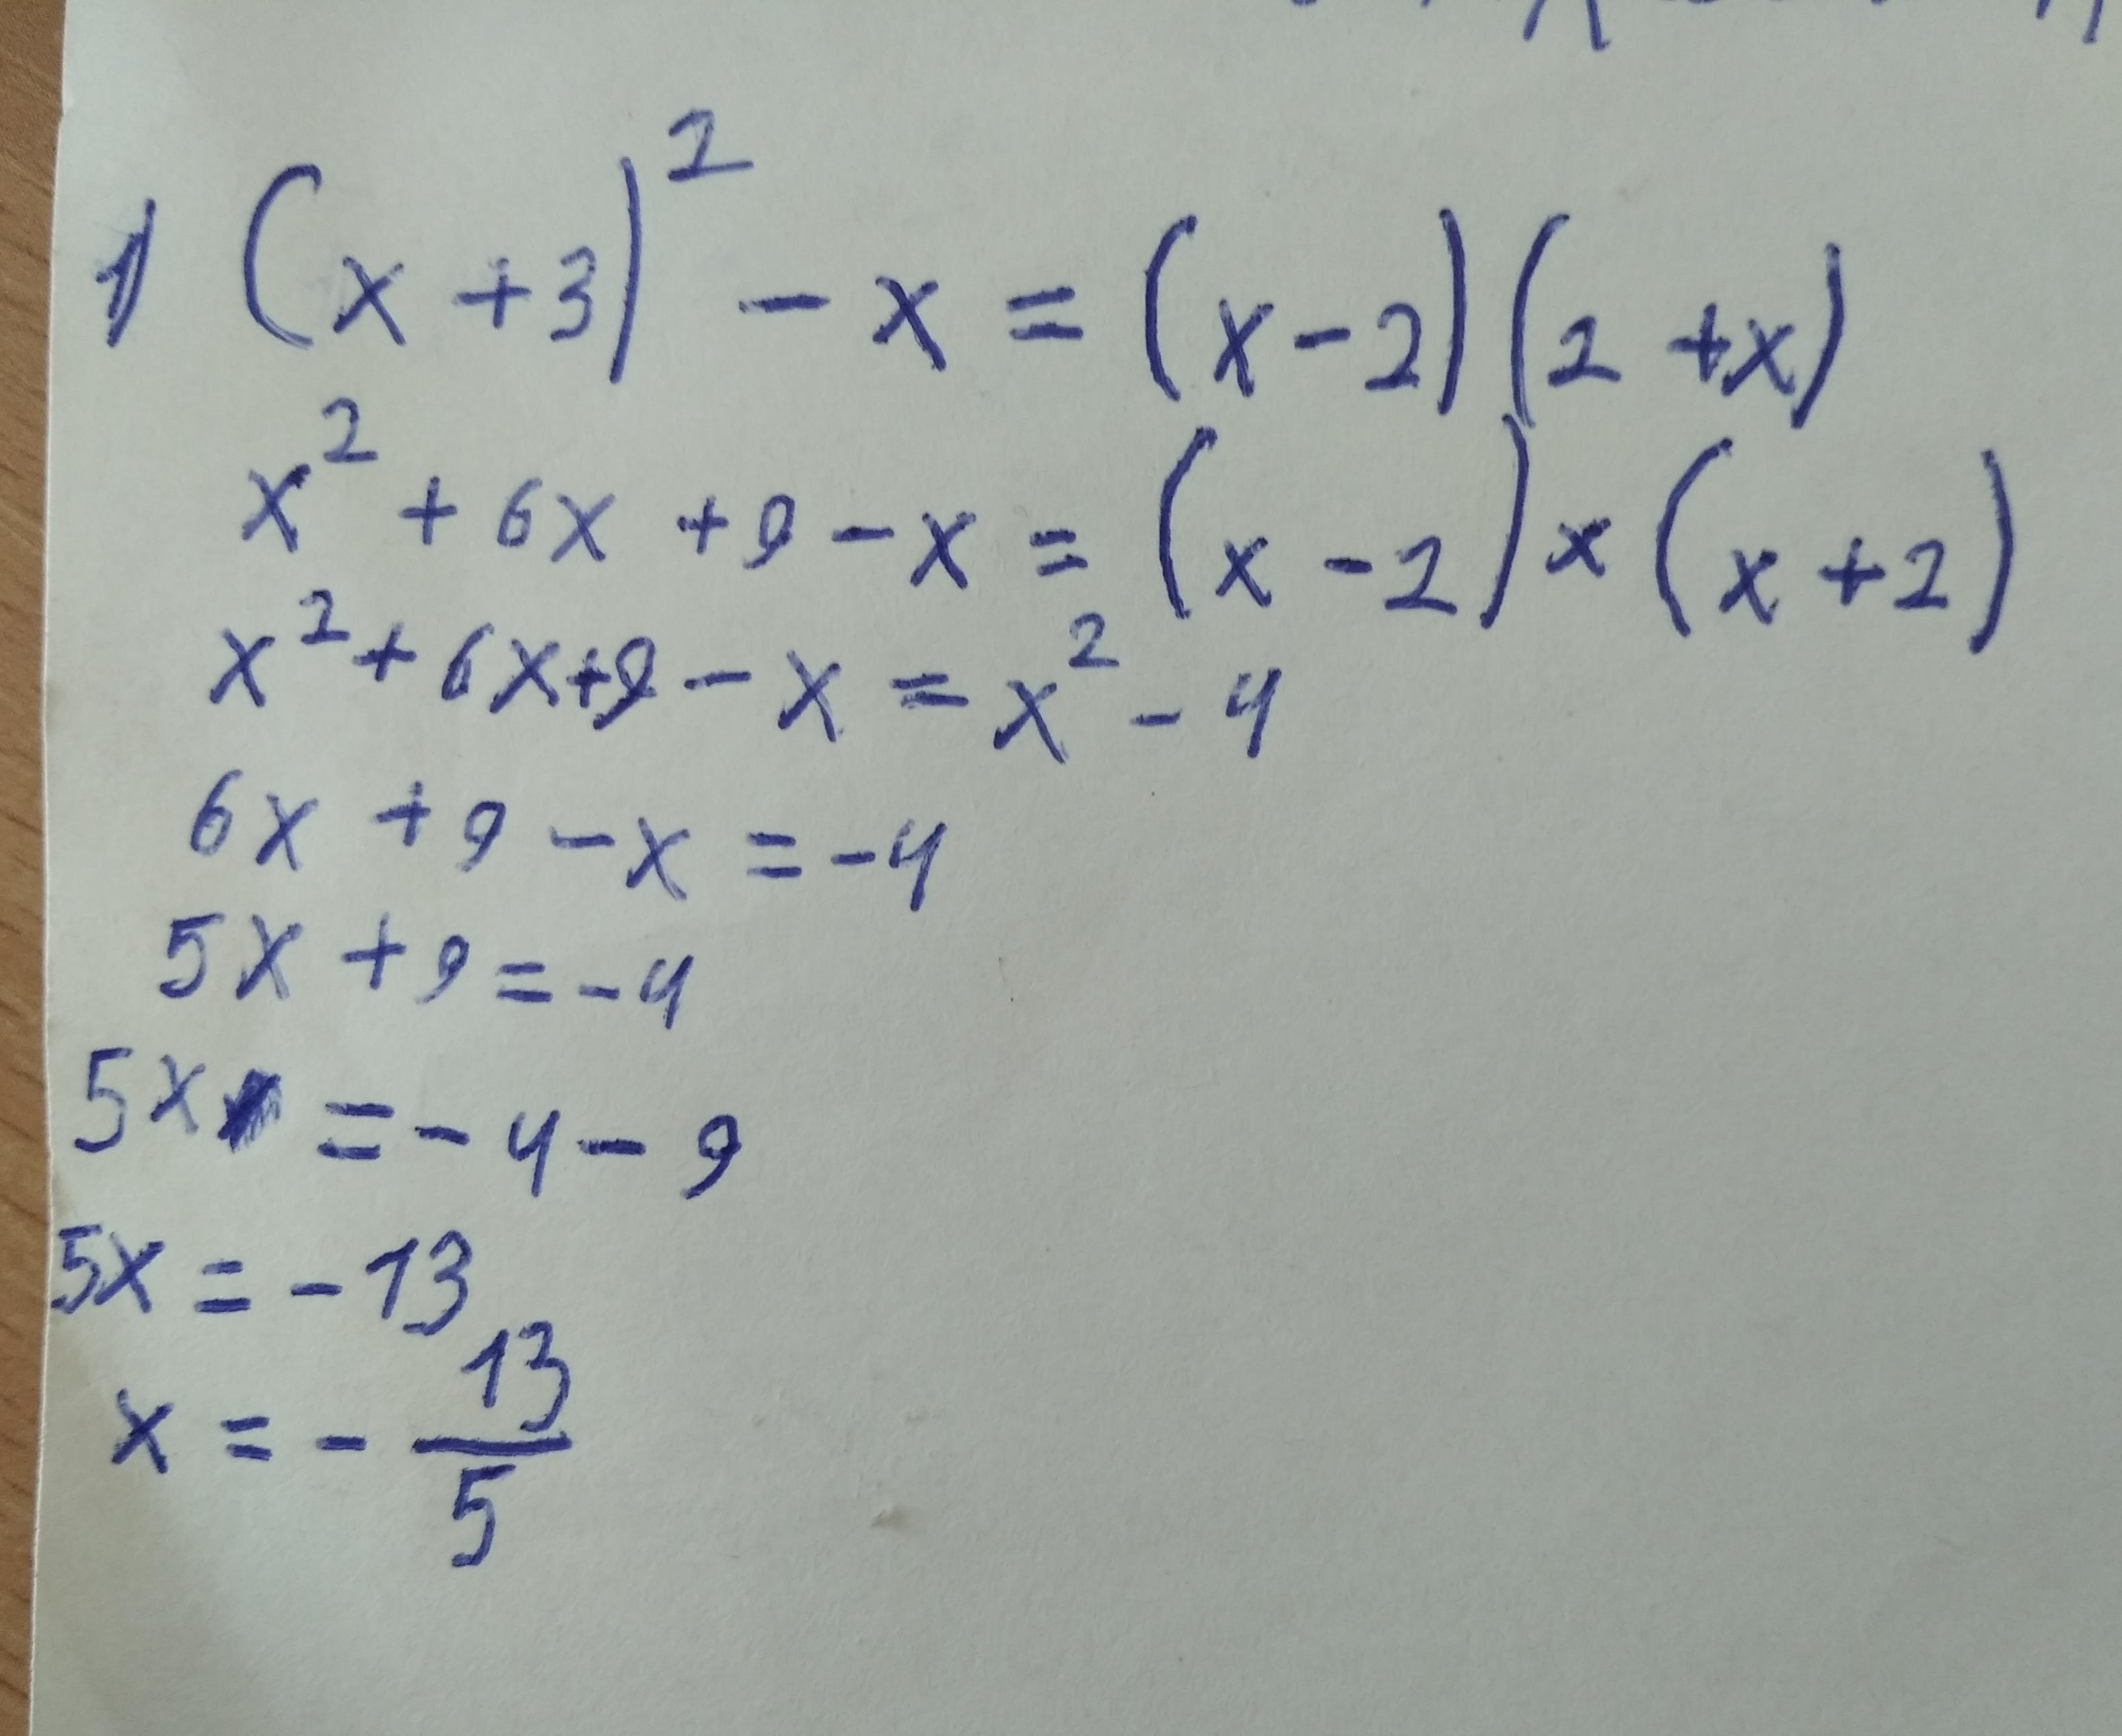 1) (x+3)² - x = (x-2)(2+x)
x² + 6x + 9 - x = (x-2)×(x+2)
x² + 6x + 9 - x = x² - 4
6x + 9 - x = -4
5x + 9 = -4
5x = -4 - 9
5x = -13
x = -13/5